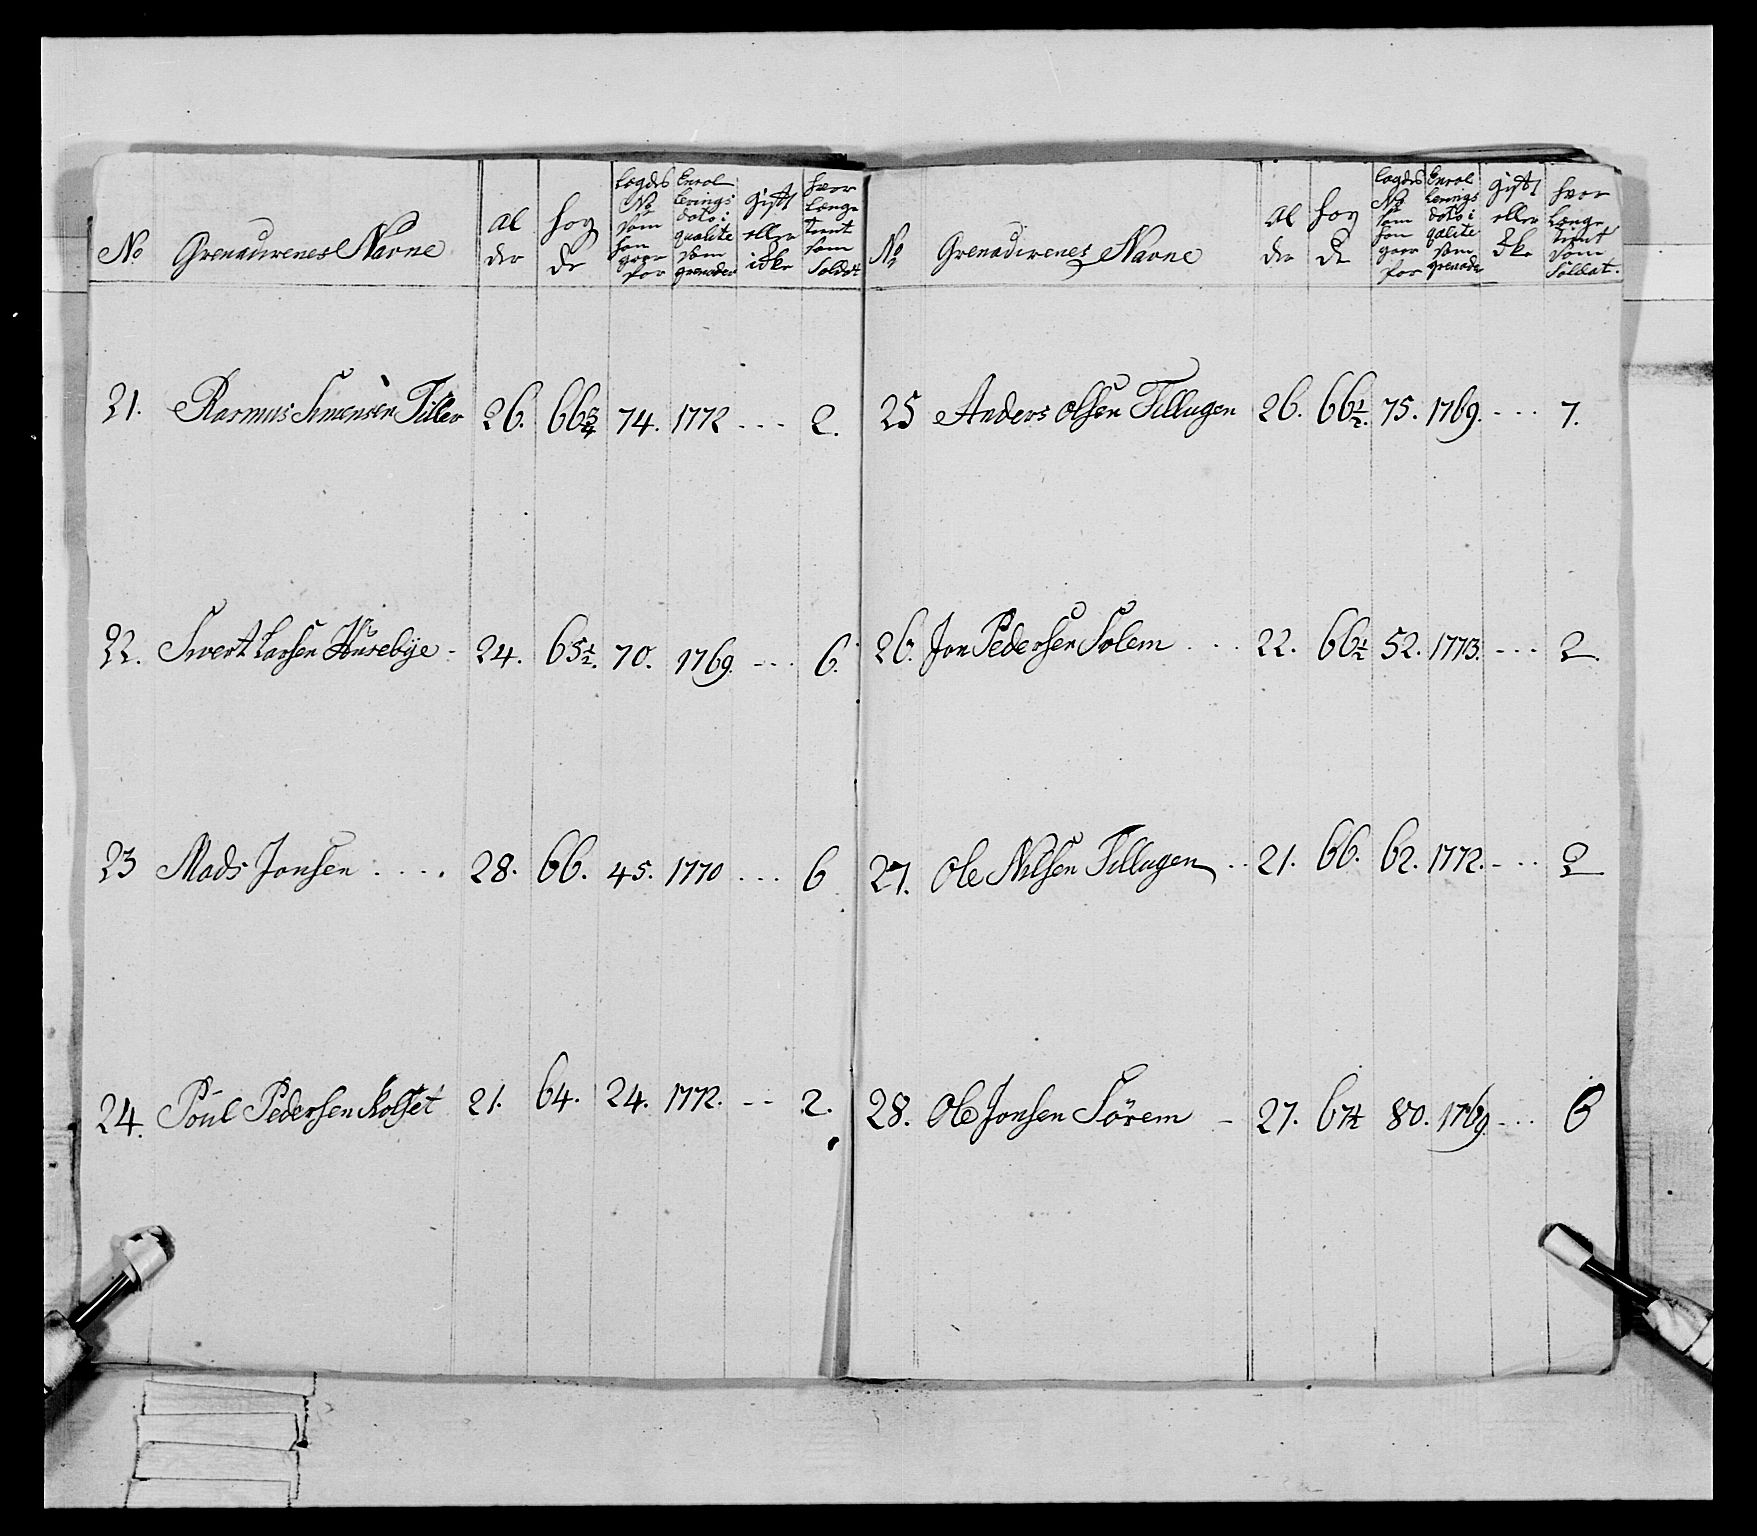 No Grenadirenes Navne Al der høy de Lægdes No som han goer for Enrol lerings dato i qualite som grenader gift eller icke hvor længe tient som Soldat
21. Rasmus Simensen Tiller 26. 66 3/4 74. 1772 ... 2.
22. Sivert Larsen Husebÿe - 24. 65 1/2. 70. 1769. ... 6.
23 Mads Jonsen .... 28. 66. 45. 1770 ... 6
24. Poul Pedersen Kolset 21. 64. 24. 1772. -- 2.
No Grenadirenes Navne Al der høy de Lægdes No som han goer for Enrol lerings dato i qalite som grenader gift eller Icke hvor længe tient som Soldat.
25 Anders Olsen Tillugen 26. 66 1/2. 75. 1769. ... 7.
26. Jon Pedersen Solem ... 22. 66 1/2 52. 1773. ... 2.
27. Ole Nilsen Tillugen .. 21. 66. 62. 1772. ... 2
28. Ole Jonsen Sörem - 27. 67 1/2 80. 1769. ... 6